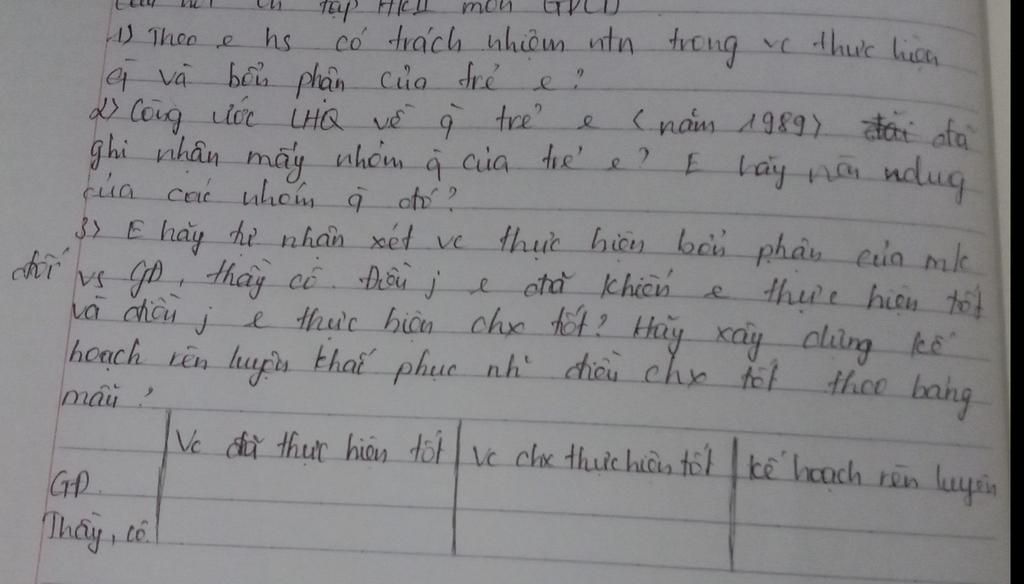 tập HKII môn GDCD
1) Theo e hs có trách nhiệm ntn trong vc thực hiện
q̀ và bổn phận của trẻ e?
2) Công ước LHQ về q̀ trẻ e (năm 1989) đã
ghi nhận mấy nhóm q̀ của trẻ e? E hãy nêu ndug
của các nhóm q̀ đó?
3) E hãy tự nhận xét vc thực hiện bổn phận của mk
đối vs GĐ, thầy cô. Điều j e đã khiến e thực hiện tốt
và điều j e thực hiện chx tốt? Hãy xây dựng kế
hoạch rèn luyện khắc phục nh~ điều chx tốt theo bảng
mẫu?
Vc đã thực hiện tốt | Vc chx thực hiện tốt | kế hoạch rèn luyện
GĐ.
Thầy, cô.